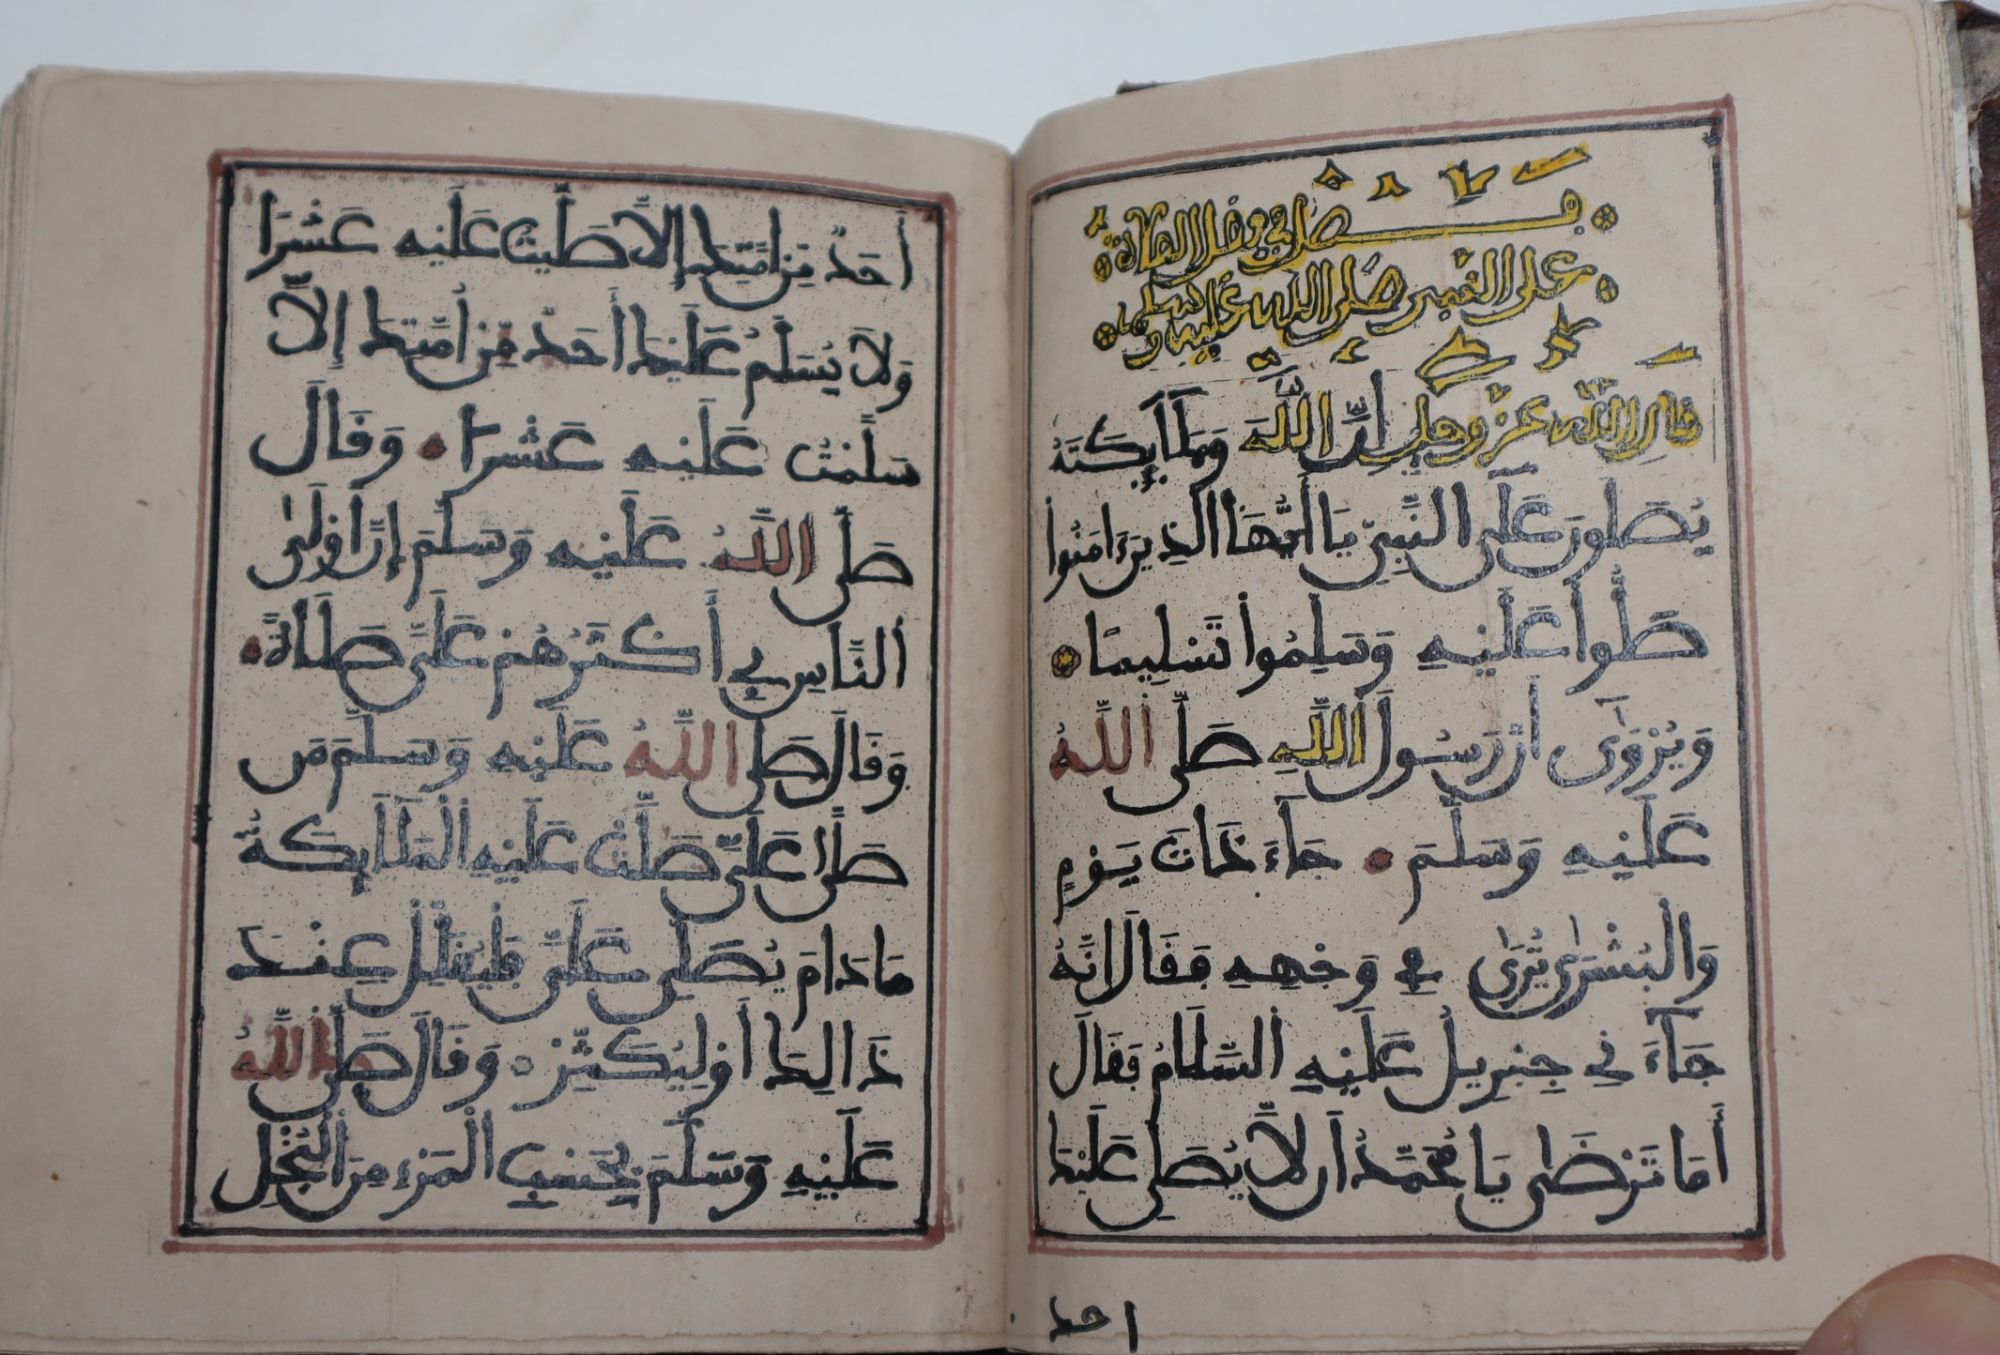 فصل في فضل الصلاة
على النبي صلى الله عليه وسلم
قال الله عز وجل إِنَّ اللَّهَ وَمَلَآئِكَتَهُ
يُصَلُّونَ عَلَى النَّبِيِّ يَا أَيُّهَا الذِينَ ءَامَنُوا
صَلُّوا عَلَيْهِ وَسَلِّمُوا تَسْلِيمًا
وَيُرْوَىٰ أَنَّ رَسُولَ اللَّهِ صَلَّى اللَّهُ
عَلَيْهِ وَسَلَّمَ جَآءَ ذَاتَ يَوْمٍ
وَالْبُشْرَىٰ تُرَىٰ فِي وَجْهِهِ فَقَالَ إِنَّهُ
جَآءَنِي جِبْرِيلُ عَلَيْهِ السَّلَامُ فَقَالَ
أَمَا تَرْضَىٰ يَا مُحَمَّدُ أَن لَّا يُصَلِّي عَلَيْكَ
احد
أَحَدٌ مِّنْ أُمَّتِكَ إِلَّا صَلَّيْتُ عَلَيْهِ عَشْرًا
وَلَا يُسَلِّمُ عَلَيْكَ أَحَدٌ مِّنْ أُمَّتِكَ إِلَّا
سَلَّمْتُ عَلَيْهِ عَشْرًا وَقَالَ
صَلَّى اللَّهُ عَلَيْهِ وَسَلَّمَ إِنَّ أَوْلَى
النَّاسِ بِي أَكْثَرُهُمْ عَلَيَّ صَلَاةً
وَقَالَ صَلَّى اللَّهُ عَلَيْهِ وَسَلَّمَ مَن
صَلَّىٰ عَلَيَّ صَلَّتْ عَلَيْهِ الْمَلَآئِكَةُ
مَا دَامَ يُصَلِّي عَلَيَّ فَلْيُقَلِّلْ عِنْدَ
ذَالِكَ أَوْ لِيُكَثِّرْ وَقَالَ صَلَّى اللَّهُ
عَلَيْهِ وَسَلَّمَ بِحَسْبِ الْمَرْءِ مِنَ الْبُخْلِ